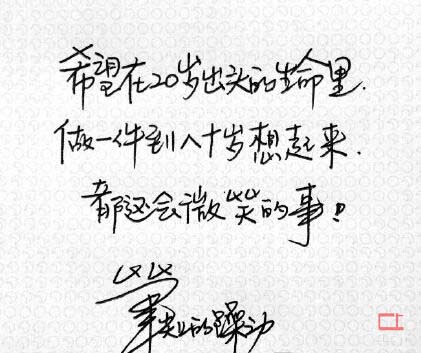 希望在20岁出头的生命里.
做一件到八十岁想起来.
都还会微笑的事!
毕业的躁动